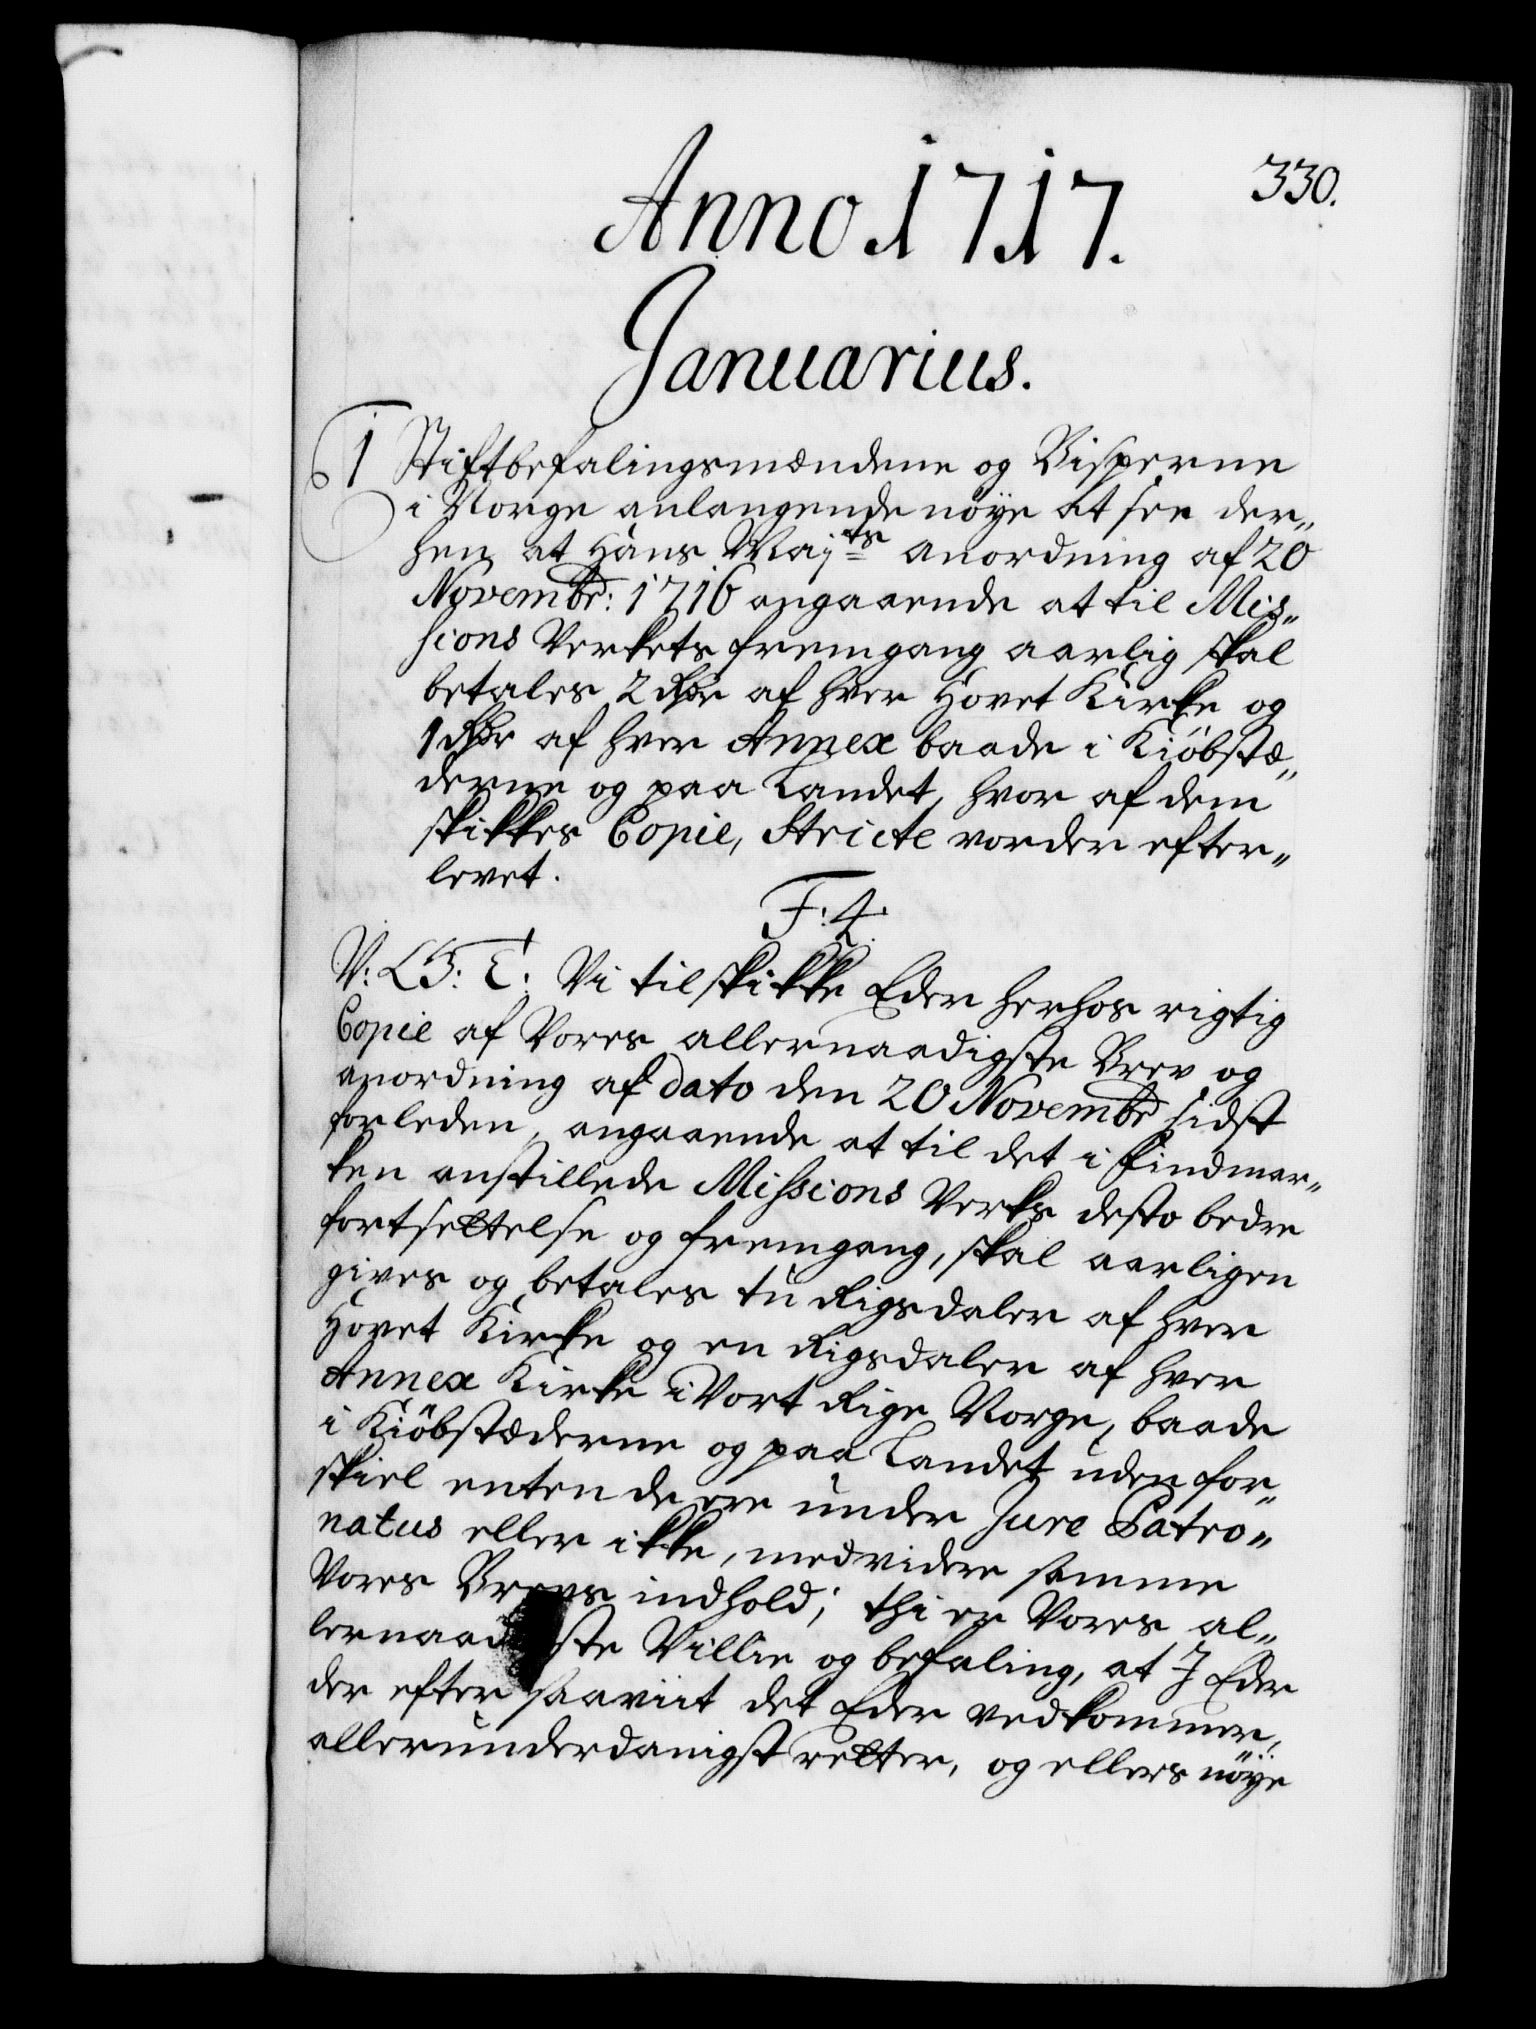 330.
Anno 1717.
Januarius.
1 Stiftbefalingsmændene og Bisperne
i Norge anlangende nöye at see der„
hen at Hans Majts anordning af 20
Novembr: 1716 angaaende at til Mis„
sions Verkets fremgang aarlig skal
betales 2 Rdr af hver Hovet Kirke og
1 Rdr af hver Annex baade i Kiöbstæ„
derne og paa Landet, hvor af dem
skikkes Copie, Stricte vorder efter„
levet.
F: 4.
V: G: T: Vi tilskikke Eder herhos rigtig
Copie af Vores allernaadigste Brev og
anordning af dato den 20 Novembr sidst
forleden, angaaende at til det i Findmar„
ken anstillede Missions Verks desto bedre
fortsettelse og fremgang, skal aarligen
gives og betales tu Rigsdaler af hver
Hovet Kirke og en Rigsdaler af hver
Annex Kirke i Vort Rige Norge, baade
i Kiöbstæderne og paa Landet uden for„
skiel enten de ere under Jure Patro„
natus eller ikke, med videre samme
Vores Brevs indhold; thi er Vores al„
lernaadigste Villie og befaling, at I Eder
der efter saavit det Eder vedkommer,
allerunderdanigst retter, og ellers nöye